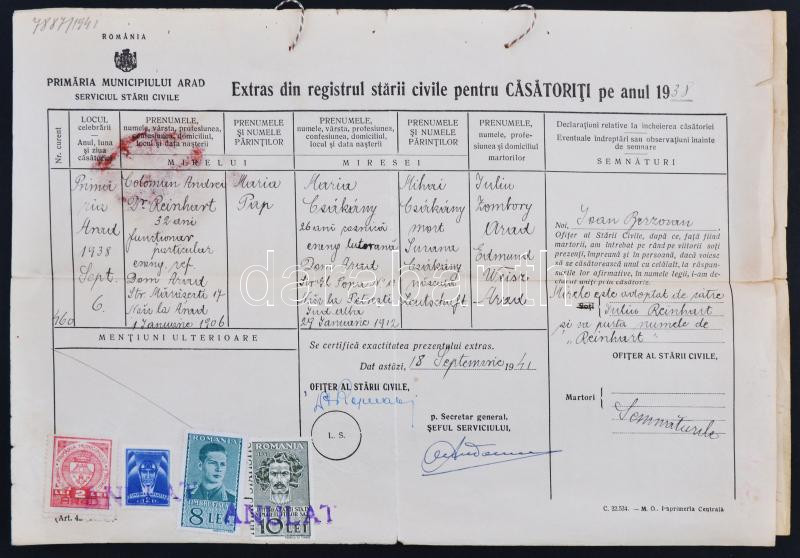 7887/1941
ROMÂNIA
PRIMĂRIA MUNICIPIULUI ARAD
SERVICIUL STĂRII CIVILE
Extras din registrul stării civile pentru CĂSĂTORIŢI pe anul 1938
Nr. curent
LOCUL
celebrării
Anul, luna
şi ziua
căsătoriei
PRENUMELE,
numele, vârsta, profesiunea,
confesiunea, domiciliul,
locul şi data naşterii
PRENUMELE
ŞI NUMELE
PĂRINŢILOR
MIRELUI
PRENUMELE,
numele, vârsta, profesiunea,
confesiunea, domiciliul,
locul şi data naşterii
PRENUMELE
ŞI NUMELE
PĂRINŢILOR
MIRESEI
PRENUMELE,
numele, profe-
siunea şi domiciliul
martorilor
Declaraţiuni relative la încheierea căsătoriei
Eventuale îndreptări sau observaţiuni înainte
de semnare
SEMNĂTURI
460
Primă
ria
Arad
1938
Sept.
6.
Coloman Andrei
Dr. Reinhart
32 ani
funcţionar
particular
evang. ref.
Dom Arad
Str Mărăşeşti 17
Năs la Arad
1 Ianuarie 1906
Maria
Pap
Maria
Csirkány
26 ani casnică
evang luterană
Dom Arad
Năs la Petreşti
Jud Alba
29 Ianuarie 1912
Mihai
Csirkány
mort
Susana
Csirkány
născută
Iuliu
Zombory
Arad
Edmund
Weisz
Arad
Noi, Ioan Berzovan
Ofiţer al Stării Civile, după ce, faţă fiind
martorii, am întrebat pe rând pe viitorii soţi
prezenţi, împreună şi în persoană, dacă voiesc
să se căsătorească unul cu celălalt, la răspun-
surile lor afirmative, în numele legii, i-am de-
clarat uniţi pe în căsătorie.
Mirele este adoptat de către
Soţi
Iuliu Reinhart
şi va purta numele de
"Reinhart"
OFIŢER AL STĂRII CIVILE,
Martori
Semnăturile
MENŢIUNI ULTERIOARE
Se certifică exactitatea prezentului extras.
Dat astăzi, 18 Septemvrie 1941
OFIŢER AL STĂRII CIVILE,
L. S.
p. Secretar general,
ŞEFUL SERVICIULUI,
LEI 2
ARAD
ROMANIA
8 LEI
ROMANIA
10 LEI
ANULAT
ANULAT
(Art. 4
C. 22.534. — M. O. Imprimeria Centrală
darabanth